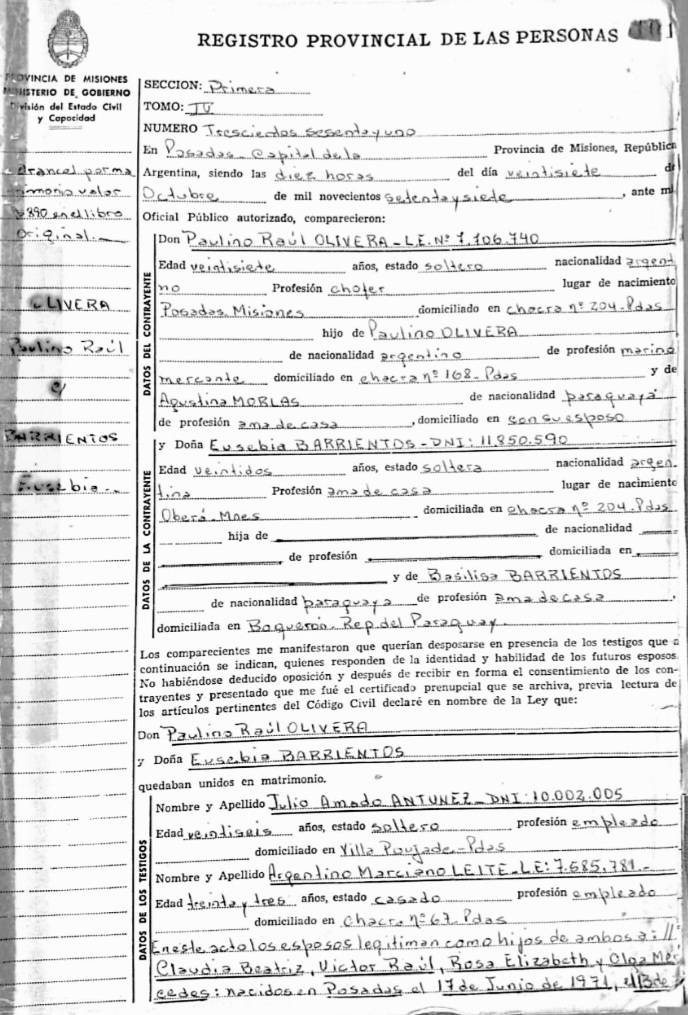 REGISTRO PROVINCIAL DE LAS PERSONAS
PROVINCIA DE MISIONES
MINISTERIO DE GOBIERNO
División del Estado Civil
y Capacidad
Arancel por ma
trimonio valor
$890 en el libro
Original.-
OLIVERA
Paulino Raúl
c/
BARRIENTOS
Eusebia.-
SECCION: Primera
TOMO: IV
NUMERO Trescientos sesenta y uno
En Posadas Capital de la Provincia de Misiones, República
Argentina, siendo las diez horas del día veintisiete de
Octubre de mil novecientos setenta y siete, ante mí
Oficial Público autorizado, comparecieron:
DATOS DEL CONTRAYENTE
Don Paulino Raúl OLIVERA - L.E. Nº 7.706.740
Edad veintisiete años, estado soltero nacionalidad argenti
no Profesión chofer lugar de nacimiento
Posadas Misiones domiciliado en chacra nº 204-Pdas
hijo de Paulino OLIVERA
de nacionalidad argentino de profesión marino
mercante domiciliado en chacra nº 168-Pdas y de
Agustina MORLAS de nacionalidad paraguaya
de profesión ama de casa, domiciliado en con su esposo
DATOS DE LA CONTRAYENTE
y Doña Eusebia BARRIENTOS - DNI: 11.850.590
Edad veintidos años, estado soltera nacionalidad argen
tina Profesión ama de casa lugar de nacimiento
Oberá Mnes domiciliada en chacra nº 204-Pdas
hija de de nacionalidad
de profesión domiciliada en
y de Basilisa BARRIENTOS
de nacionalidad paraguaya de profesión ama de casa,
domiciliada en Boquerón-Rep. del Paraguay.
Los comparecientes me manifestaron que querían desposarse en presencia de los testigos que a
continuación se indican, quienes responden de la identidad y habilidad de los futuros esposos.
No habiéndose deducido oposición y después de recibir en forma el consentimiento de los con-
trayentes y presentado que me fué el certificado prenupcial que se archiva, previa lectura de
los artículos pertinentes del Código Civil declaré en nombre de la Ley que:
Don Paulino Raúl OLIVERA
y Doña Eusebia BARRIENTOS
quedaban unidos en matrimonio.
DATOS DE LOS TESTIGOS
Nombre y Apellido Julio Amado ANTUNEZ - DNI: 10.002.005
Edad veintiseis años, estado soltero profesión empleado
domiciliado en Villa Poujade-Pdas
Nombre y Apellido Argentino Marciano LEITE - LE: 7.685.781.-
Edad treinta y tres años, estado casado profesión empleado
domiciliado en Chacra nº 67-Pdas
En este acto los esposos legitiman como hijos de ambos a: //
Claudia Beatriz, Victor Raúl, Rosa Elizabeth y Olga Mer
cedes: nacidos en Posadas el 17 de Junio de 1971, el 13 de